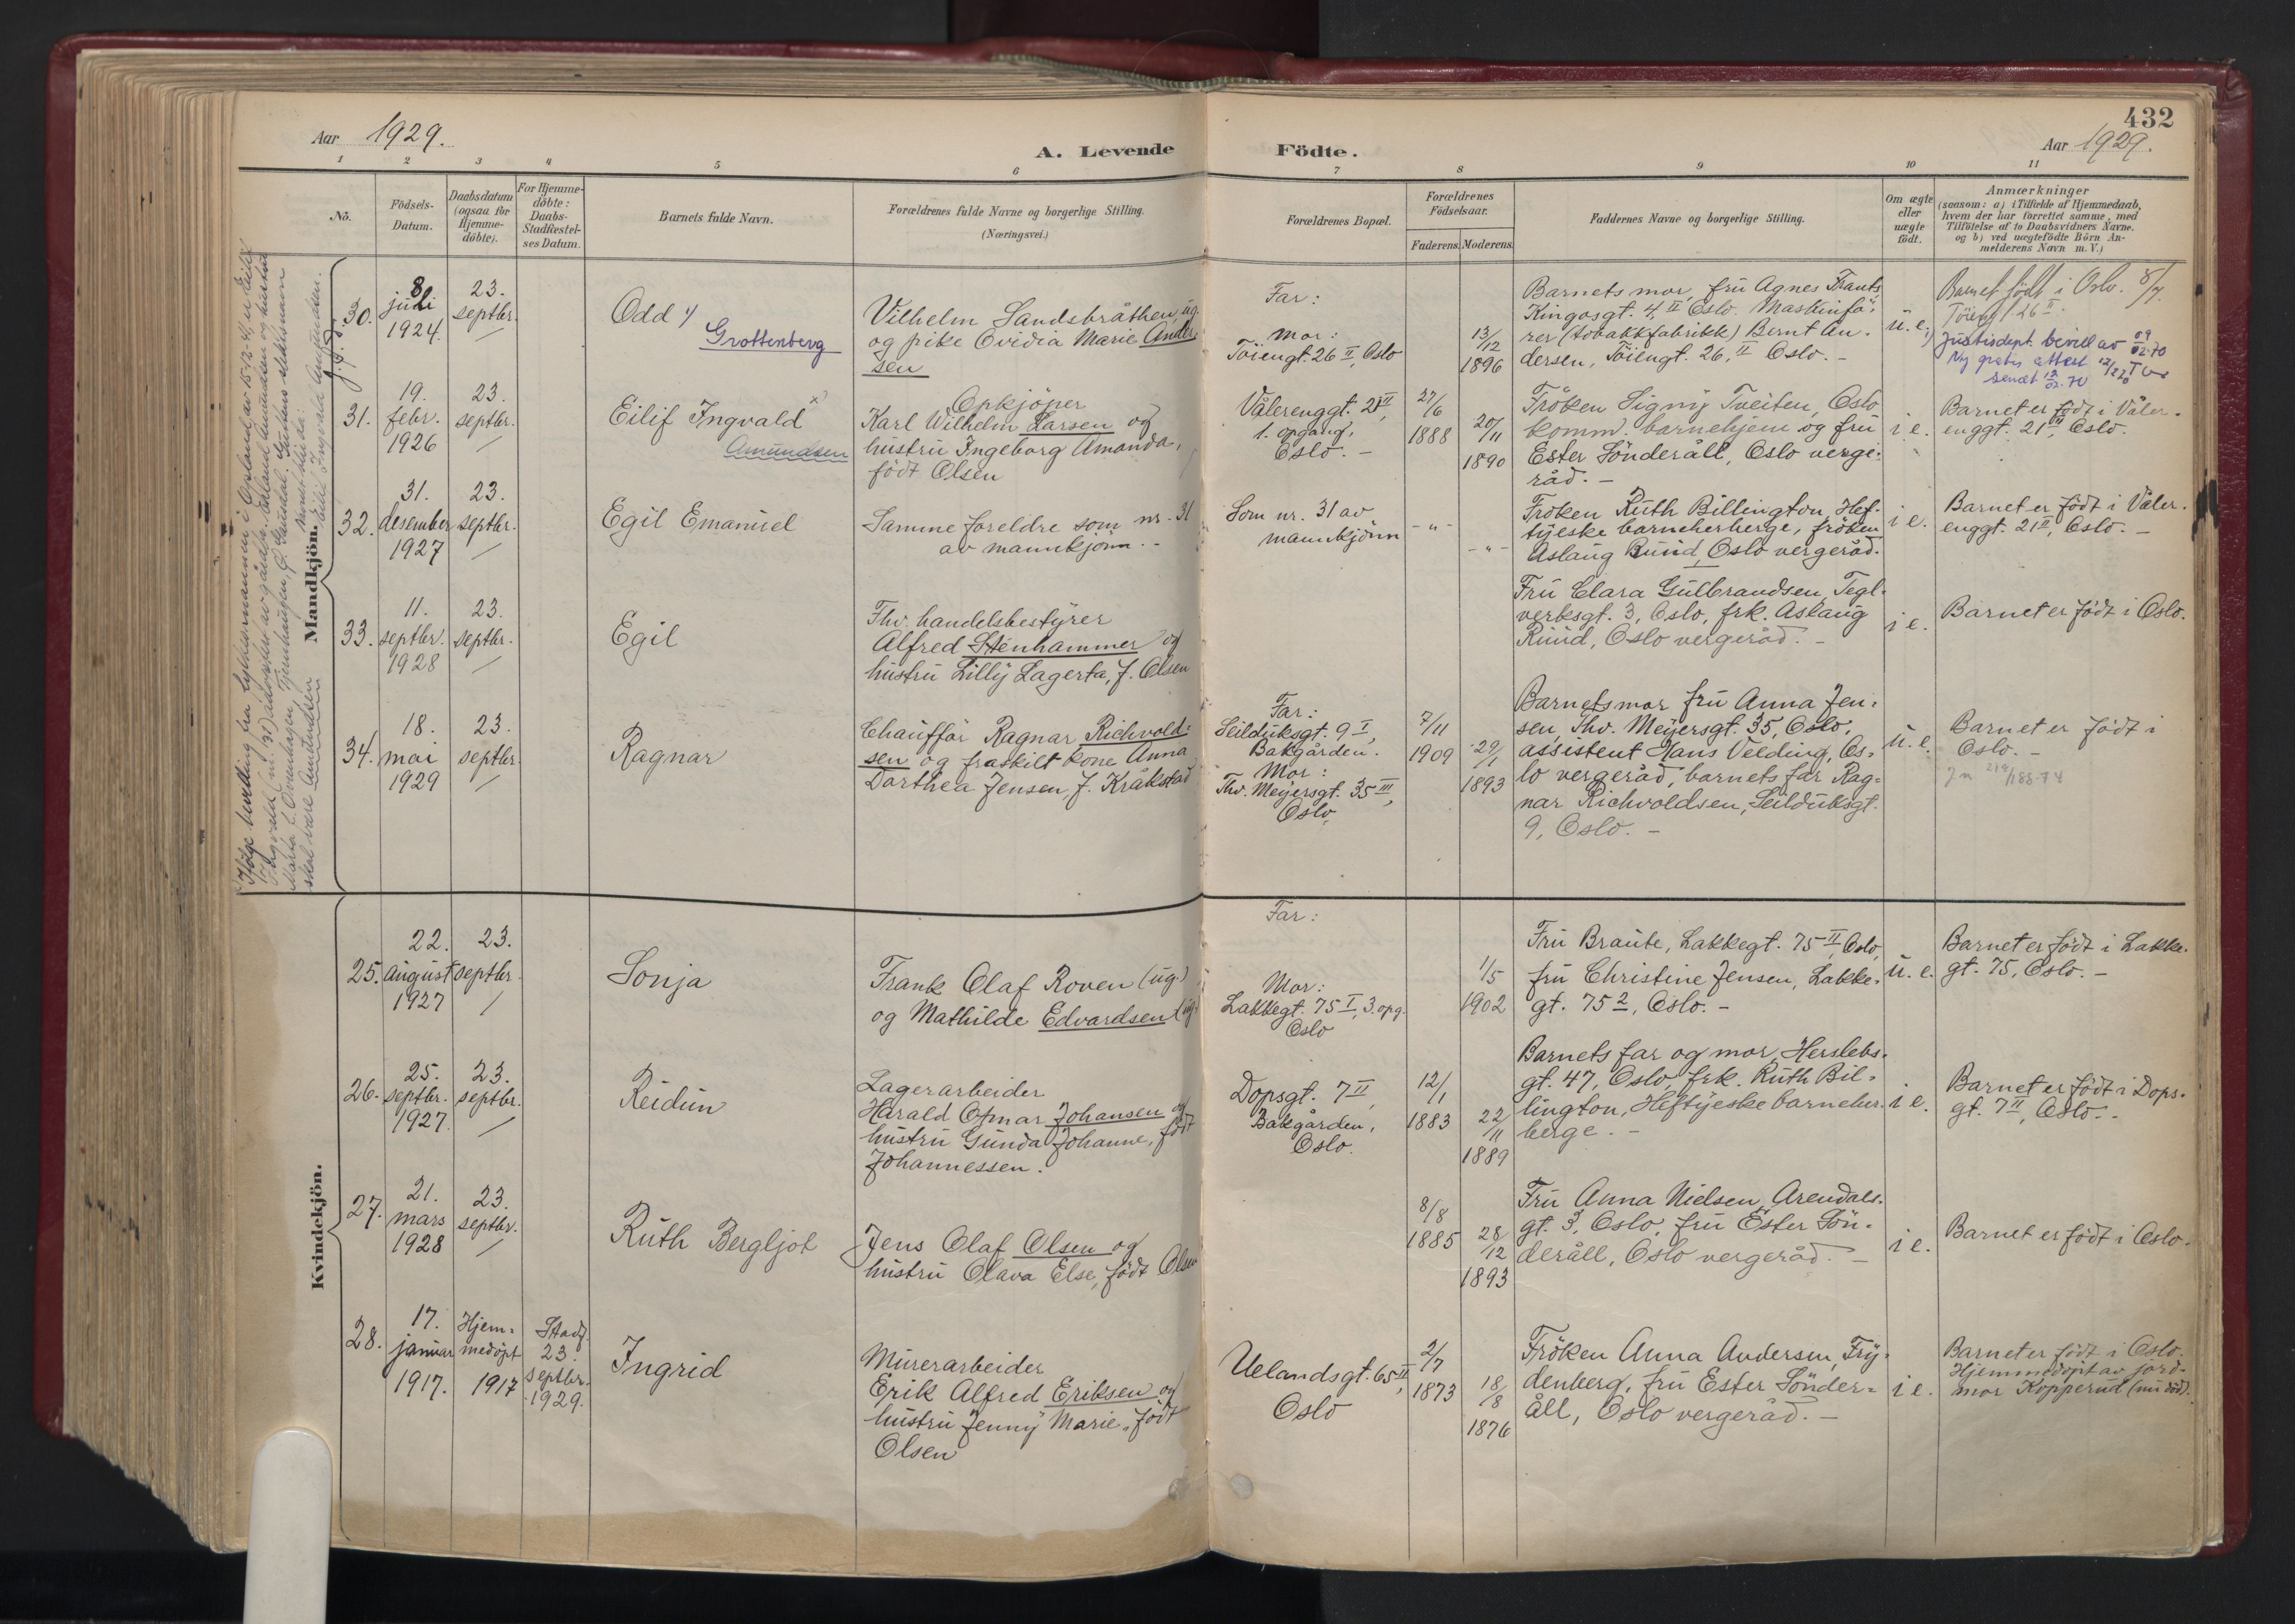 Aar 1929.
A. Levende Födte.
432
Aar 1929.
1 2 3 4 5 6 7 8 9 10 11
Nö.
Födsels-Datum.
Daabsdatum (ogsaa for Hjemmedöbte).
For Hjemmedöbte: Daabs-Stadfæstelses Datum.
Barnets fulde Navn.
Forældrenes fulde Navne og borgerlige Stilling.
(Næringsvei.)
Forældrenes Bopæl.
Forældrenes Födselsaar.
Faderens. Moderens.
Faddernes Navne og borgerlige Stilling.
Om ægte eller uægte födt.
Anmærkninger
(saasom: a) i Tilfælde af Hjemmedaab,
hvem der har forrettet samme, med
Tilföielse af to Daabsvidners Navne.
og b) ved uægtefödte Börn An-
melderens Navn m. V.)
Mandkjön.
30.
8
juli
1924.
23.
septbr.
Odd
Grottenberg
Vilhelm Sandsbråthen, ug.
og pike Ovidia Marie Ander-
sen
Far:
Mor:
Töiengt. 26 II, Oslo
13/12
1896
Barnets mor, fru Agnes Frants,
Kingosgt. 4, II Oslo. Maskinfö-
rer (tobakkfabrikk) Bernt An-
dersen, Töiengt. 26, II Oslo. -
u. e.
Barnet födt i Oslo. 8/7.
Töiengt 26 II.
Justisdept. bevill av 09/02-70
31.
19.
febr.
1926
23.
septbr.
Eilif Ingvald x)
Amundsen
Opkjöper
Karl Wilhelm Larsen og
hustru Ingeborg Amanda,
födt Olsen
Vålerenggt. 21 II,
1. opgang,
Oslo. -
27/6
1888
20/11
1890
Fröken Signy Tveiten, Oslo
komm. barnehjem og fru
Ester Sönderåll, Oslo verge-
råd. -
i e.
Barnet er födt i Våler-
enggt. 21 II, Oslo.
32.
31.
desember
1927
23.
septbr.
Egil Emanuel
Samme foreldre som nr. 31
av mannkjönn. -
Som nr. 31 av
mannkjönn
- " -
- " -
Fröken Ruth Billington, Hef-
tyeske barneherberge, fröken
Aslaug Ruud, Oslo vergeråd.
i e.
Barnet er födt i Våler-
enggt. 21 II, Oslo. -
33.
11.
septbr.
1928
23.
septbr.
Egil
Fhv. handelsbestyrer
Alfred Stenhammer og
hustru Lilly Lagerta, f. Olsen
Fru Clara Gulbrandsen, Tegl-
verksgt. 3, Oslo, frk. Aslaug
Ruud, Oslo vergeråd. -
i e.
Barnet er födt i Oslo.
34.
18.
mai
1929
23.
septbr.
Ragnar
Chaufför Ragnar Richvold-
sen og fraskilt kone Anna
Dorthea Jensen, f. Kråkstad
Far:
Seilduksgt. 9 I,
Bakgården.
Mor:
Thv. Meyersgt. 35 III,
Oslo.
7/11
1909
29/1
1893
Barnets mor fru Anna Jen-
sen, Thv. Meyersgt. 35, Oslo,
assistent Hans Velding, Os-
lo vergeråd, barnets far Rag-
nar Richvoldsen, Seilduksgt.
9, Oslo. -
u. e.
Barnet er födt i
Oslo. -
Kvindekjön.
25.
22.
august
1927
23.
septbr.
Sonja
Frank Olaf Roven (ug.)
og Mathilde Edvardsen (ug.
Far:
Mor:
Lakkegt. 75 I, 3. opg.
Oslo
1/5
1902
Fru Braute, Lakkegt. 75 II, Oslo,
fru Christine Jensen, Lakke-
gt. 75 2, Oslo. -
u. e.
Barnet er födt i Lakke-
gt. 75, Oslo. -
26.
25.
septbr.
1927.
23.
septbr.
Reidun
Lagerarbeider
Harald Otmar Johansen og
hustru Gunda Johanne, födt
Johannessen.
Dopsgt. 7 II,
Bakgården,
Oslo.
12/1
1883
22/11
1889
Barnets far og mor, Herslebs-
gt. 47, Oslo, frk. Ruth Bil-
lington, Heftyeske barneher-
berge. -
i e.
Barnet er födt i Dops-
gt. 7 II, Oslo. -
27.
21.
mars
1928
23.
septbr.
Ruth Bergljot
Jens Olaf Olsen og
hustru Olava Else, födt Olsen
8/8
1885
28/12
1893
Fru Anna Nielsen, Arendals-
gt. 3, Oslo, fru Ester Sön-
deråll, Oslo vergeråd. -
i e.
Barnet er födt i Oslo.
28.
17.
januar
1917.
Hjem-
medöpt
1917
Stadf.
23.
septbr.
1929.
Ingrid
Murerarbeider
Erik Alfred Eriksen og
hustru Jenny Marie, födt
Olsen
Uelandsgt. 65 II,
Oslo
2/7
1873
18/8
1876
Fröken Anna Andersen, Fry-
denberg, fru Ester Sönder-
åll, Oslo vergeråd. -
i e.
Barnet er födt i Oslo.
Hjemmedöpt av jord-
mor Kopperud (nu död).